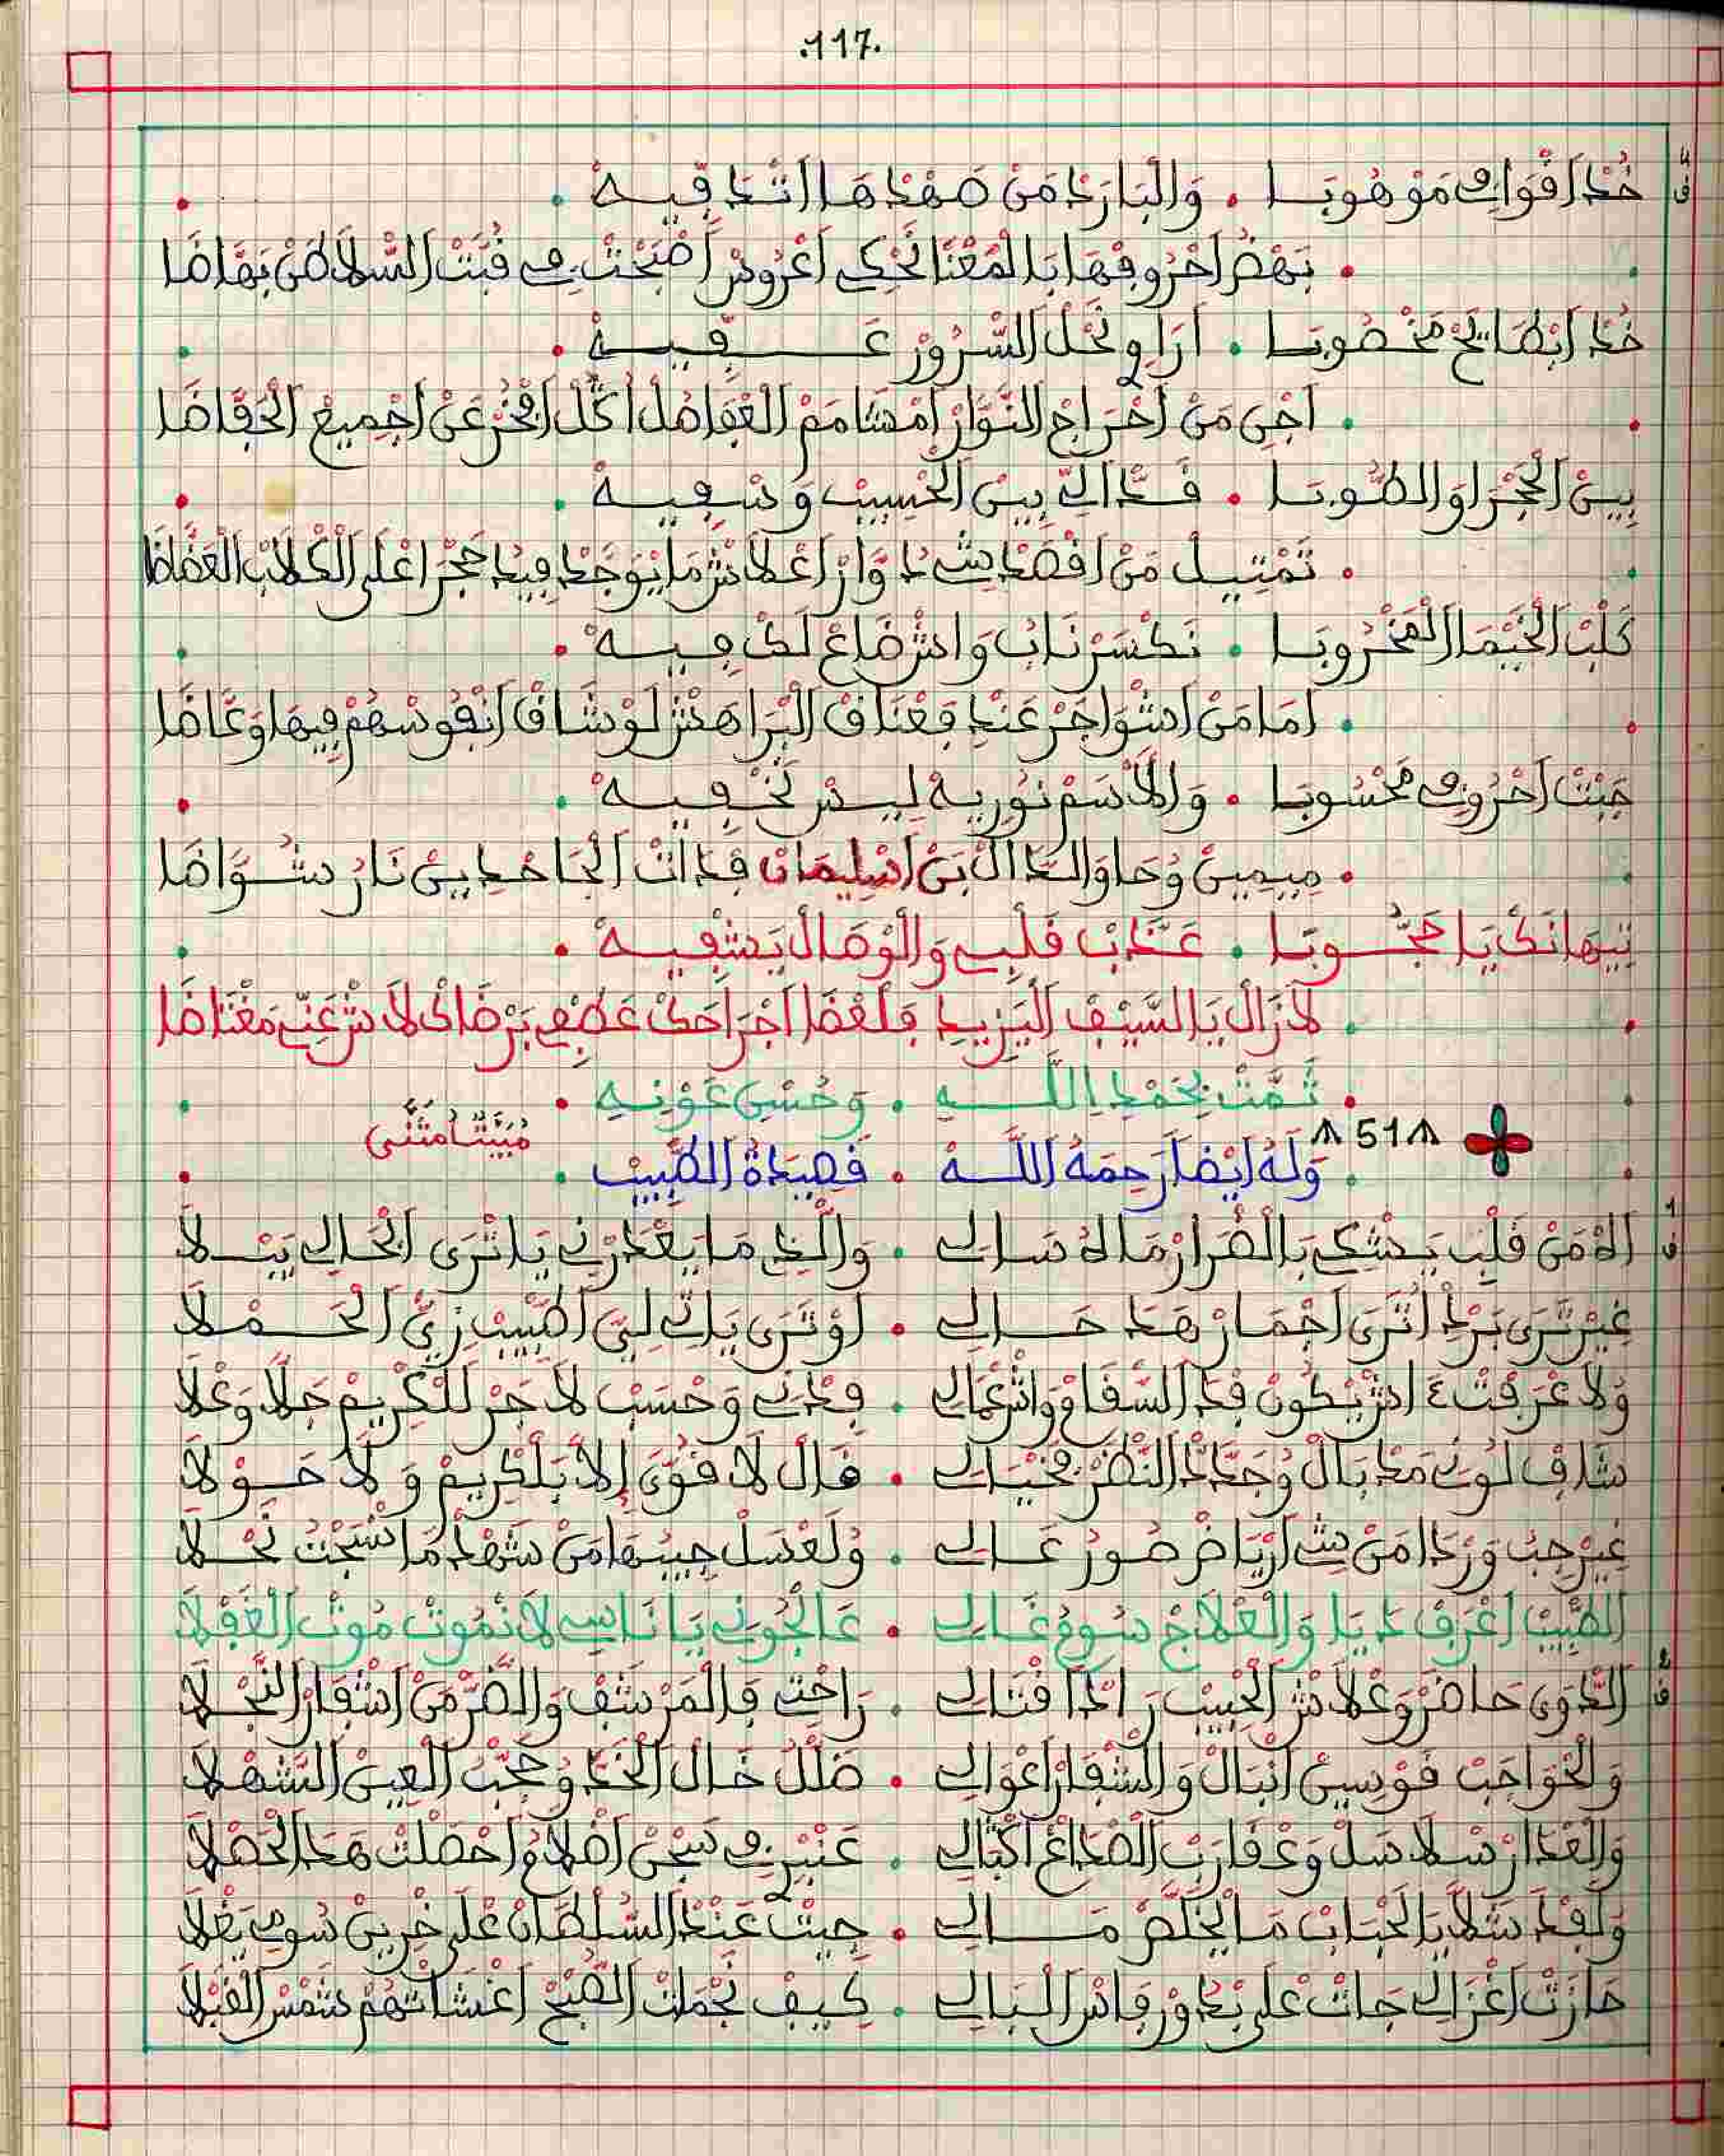 .117.
خُذْ اَقْوَافِي مَوْهُوبَا . وَالْبَارَدْ مَنْ صَهْدْهَا اتْدَفِّيهْ .
. بَهْضْ اَحْرُوفْهَا بَالْمَعْنَا تَحْكِي اَعْرُوسْ اَضْبَحْتْ فِي قُبَّتْ السّْلَاطَنْ بَهَّاضَا
خُذْ اَبْطَايَحْ مَخْضُوبَا . اَرَاوِ نَحْلْ السّْرُورْ عَـــفِيهْ .
. اَجِي مَنْ اَخْرَاجْ النُّوَّارْ اَمْشَامَمْ الْفَاضْلْ اَكُلّْ اَفْخَرْ عَنْ اَجْمِيعْ الْحَفَّاضَا
بِينْ الْحَجْرَا وَالطُّوبَا . فَدَّالِي بِينْ الْحْسِيبْ وَسْفِيهْ .
. تَمْثِيلْ مَنْ اَقْصَدْ شِي دُوَّارْ اَعْلَاشْ مَا يُوجَدْ فِيدُ حَجْرَا عْلَى الْكْلَابْ الْعَضَّاضَا
كَلْبْ الْخَيْمَا الْمَخْرُوبَا . نَكْسَرْ نَابُ وَاشْ ضَاعْ لَكْ فِيهْ .
. اَمَا مَنْ اَشْوَاجَرْ عَنْدِ فَعْنَاقْ الْبْرَاهَشْ لَوْ شَافْ اَنْفُوسْهُمْ فِيهَا وَعَّاضَا
جَبْتْ اَحْرُوفِي مَحْسُوبَا . وَالْاَسَمْ نُورِيهْ لِيسْ نَخْفِيهْ .
. مِيمِينْ وُحَا وَالدَّالْ بَنْ اَسْلِيمَانْ فَذَاتْ الْجَاحْدِينْ نَارُ شْوَّاضَا
تِيهَانَكْ يَا مَحْجُوبَا . عَذَّبْ قَلْبِي وَالْوْصَالْ يَشْفِيهْ .
. لَا زَالْ يَا السَّيْفْ الْيَزِيدْ فَلَعْضَا اَجْرَاحَكْ عَطْفِي بَرْضَاكْ لَا شْ عَنِّي مَغْتَاضَا
. تَمَّتْ بِحَمْدِ اللَّـــهِ . وَحُسْنِ عَوْنِهِ .
51
مْبَيَّتْ مَثْنَى
. وَلَهُ اَيْضًا رَحِمَهُ اللَّـــهْ . قَصِيدَةُ الطَّبِيبْ .
اَلاَهْ مَنْ قَلْبِ يَشْكِي بَالْضْرَارْ مَالُهْ سَالِي . وَالَّذِي مَا يَعْذَرْنِي يَا تْرَى الْحَالِي يَبْلَا
غِيرْ تَّرَى بَرْدْ اُتَّرَى اَجْمَارْ هَذَا حَـــالِي . اَوْ تَرَى يَاتِي لِيَّ اَطْبِيبْ زِيَّ الْحَمْلَا
وَلَا عْرَفْتْ ءَاشْ يْكُونْ فَدْ السّْقَامْ وَاشْ عْمَالِي . فِدْنِي وَحْسَبْ لَاجَرْ لَلْكْرِيمْ جَلَّا وَعْلَا
شَافْ لُونِي مَدْبَالْ وُجَدَّدْ النّْظَرْ فْخْيَالِي . قَالْ لَا قُوَّى اِلاَّ بَلْكْرِيمْ وَلَا حَوْلَا
غِيرْ جِيبُ وَرْدَا مَنْ شِي اَرْيَاضْ صُورُ عَـــالِي . وُلَعْسَلْ جِيبُهَا مَنْ شَهْدْ مَا سْبْحْتُ نَحْلَا
الطّْبِيبْ اَعْرَفْ دَايَا وَالْعْلَاجْ سُومُ غَـــالِي . عَالْجُونِي يَا نَاسِي لَا نْمُوتْ مُوتْ الْغَفْلَا
الدّْوَى حَاضَرْ وَعْلَاشْ الْحْبِيبْ رَادْ اَقْتَالِي . رَاحْتِي فَالْمَرْشَفْ وَالضُّرّْ مَنْ اَشْفَارْ النَّجْلَا
وَالْحْوَاجَبْ قَوْسِينْ اَنْبَالْ وَالشّْفَارْ اَعْوَالِي . ضَلَّلْ خَالْ الْخَدّْ وُحَجَّبْ الْعِينْ الشَّهْلَا
وَالْعْدَارْ سْلَاسَلْ وَعْقَارَبْ الصّْدَاغْ اَكْبَالِي . عَنْبْرِي سَجْنْ اَضْلَامْ اَحْصَلْتْ هَذَا الْحَصْلَا
وَلَقَدْ سْلَّا يَا لَحْبَابْ مَا يْخَلَّصْ مَـــالِي . جِيتْ عَنْدْ السُّلْطَانْ عْلَى خْرِينْ سُومِي يَغْلَا
حَازَتْ اَغْزَالِي جَاتْ عْلَى بْدُورْ فَاسْ الْبَالِي . كِيفْ نَجْمَاتْ الصّْبْحْ اَغْشَاتْهُمْ شَمْسْ الْقَبْلَا